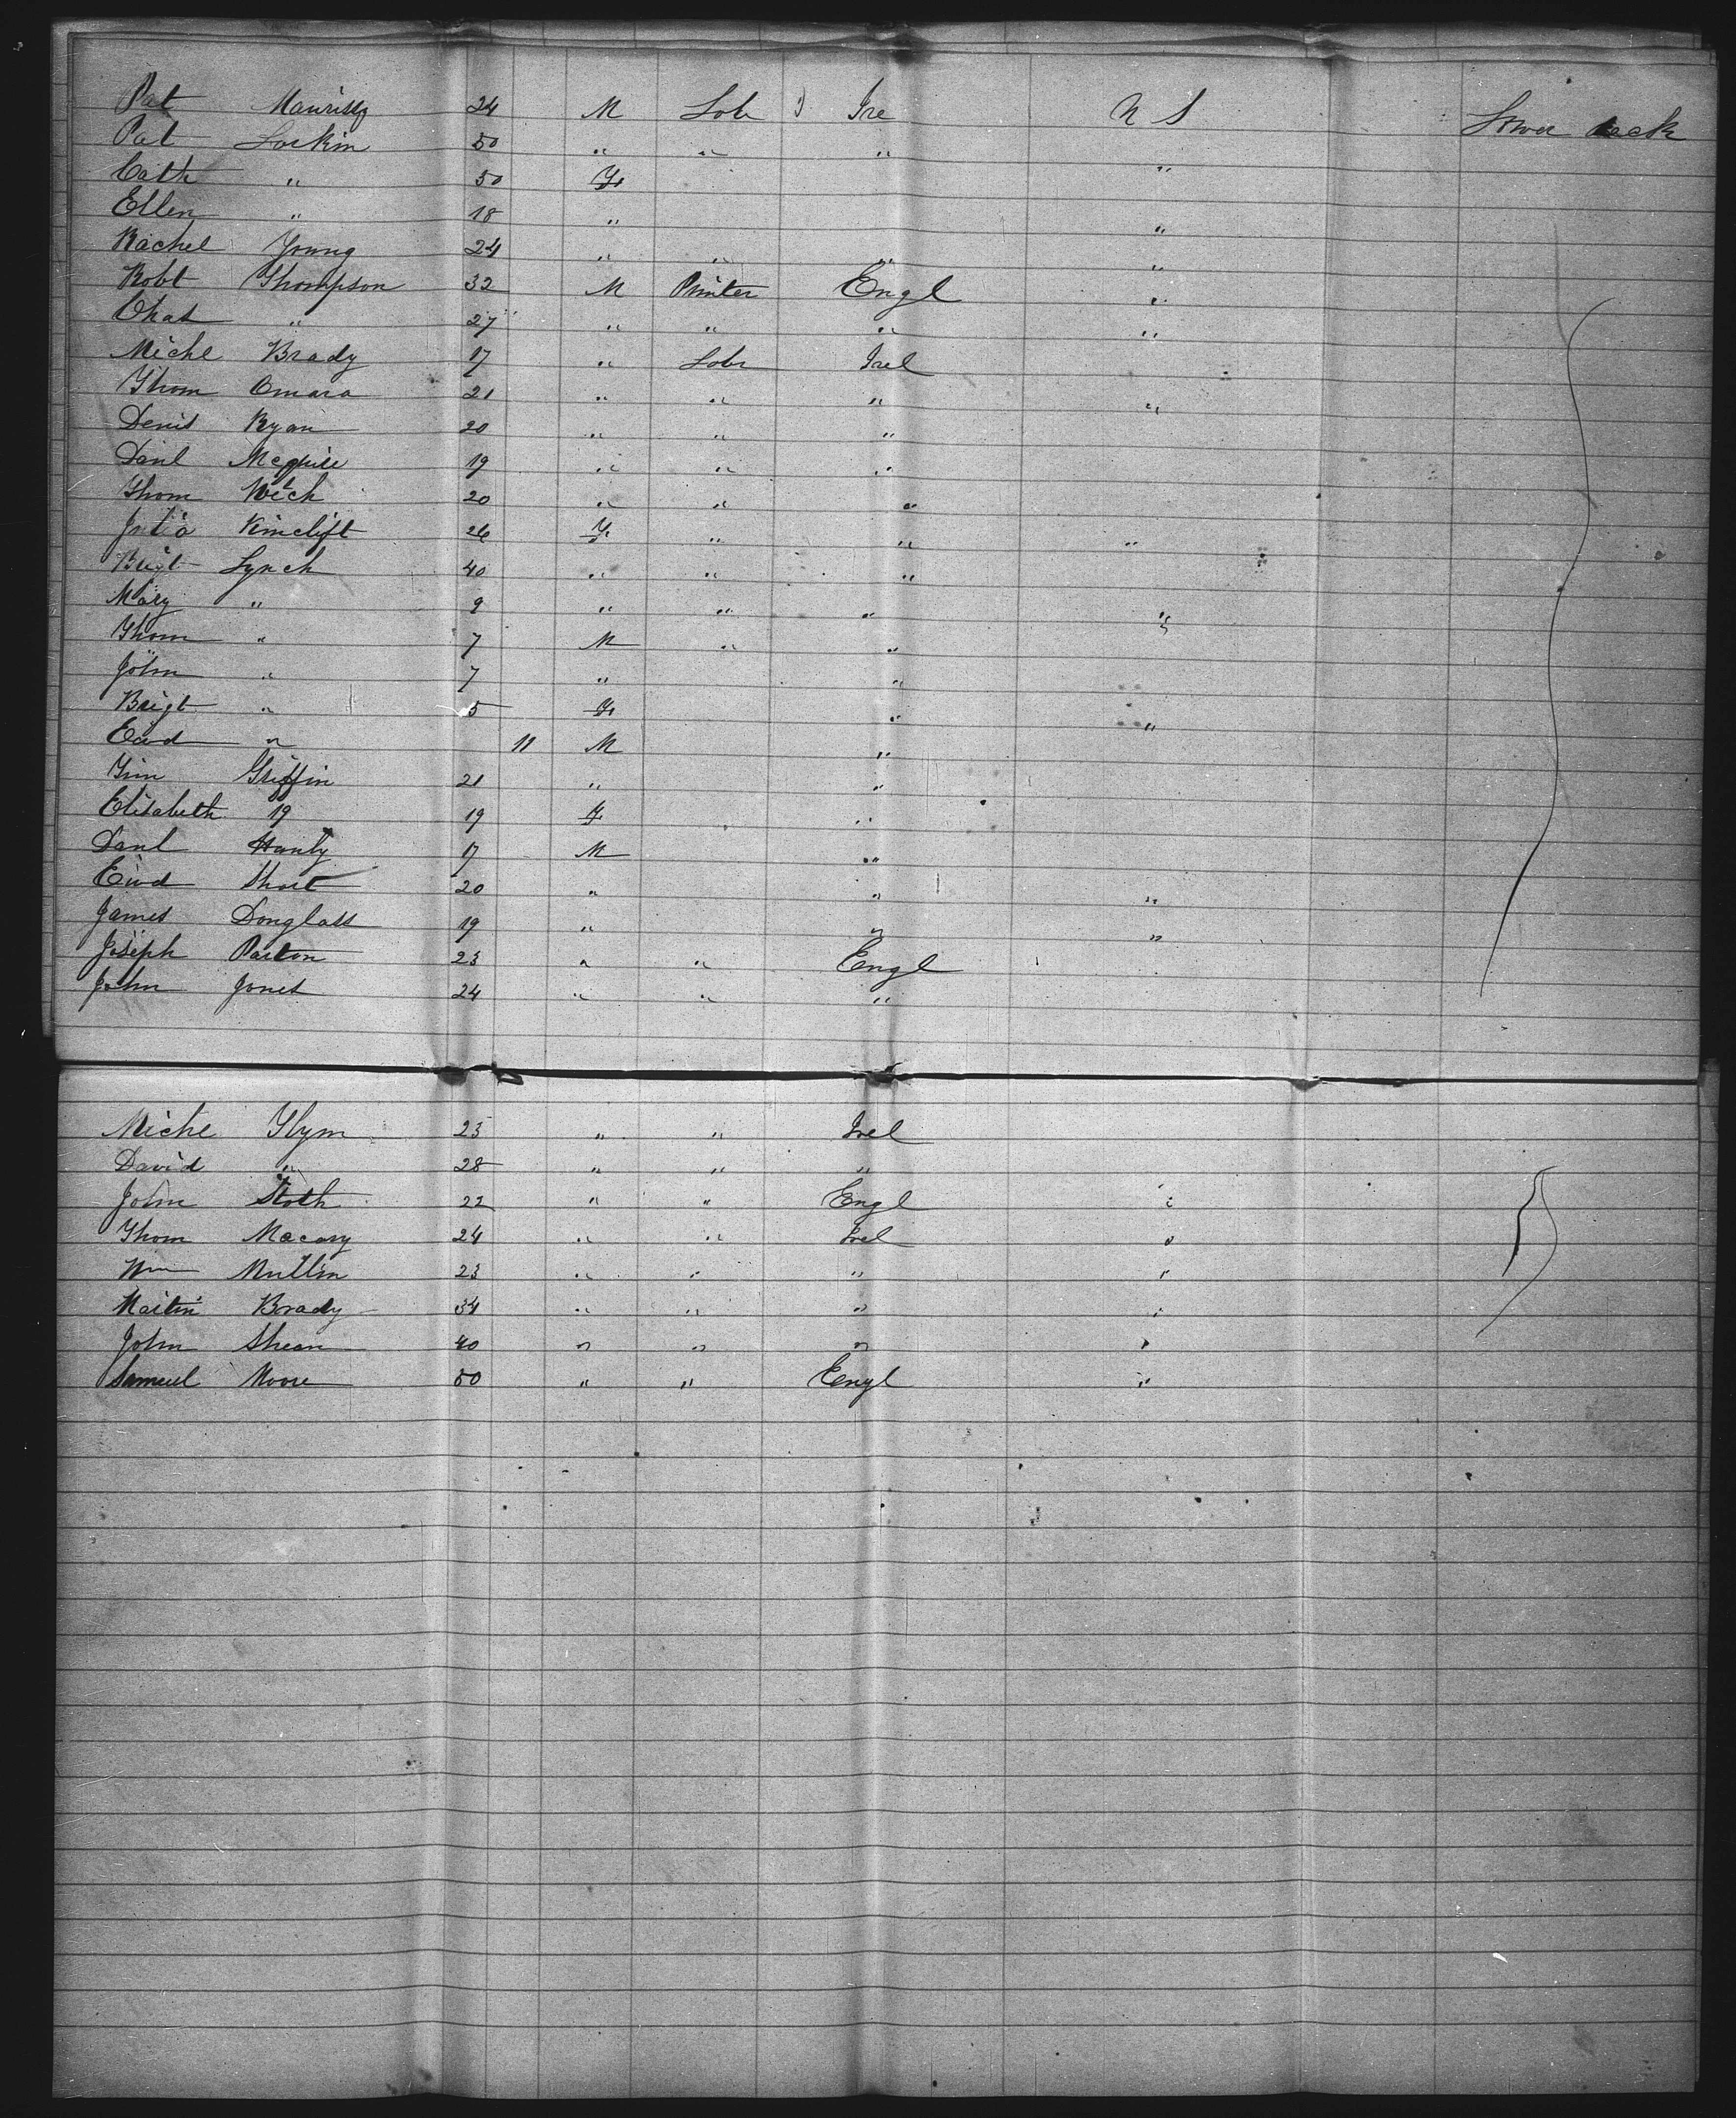 Pat Maurissy 24 M Lobr Ire U S Lower Deck
Pat Larkin 50 " " "
Cath " 50 F "
Ellen " 18 " "
Rachel Young 24 " " " "
Robt Thompson 32 M Printer Engl "
Chas " 27 " " " "
Michl Brady 17 " Lobr Irel
Thom Omara 21 " " " "
Denis Ryan 20 " " "
Danl Mcguire 19 " " "
Thom 20 " " "
Julia 26 F " " "
Brigt Lynch 40 " " "
Mary " 9 " " " "
Thom " 7 M " "
John " 7 " "
Brigt " 5 F " "
Ewd " 11 M "
Tim Griffin 21 " "
Elisabeth 19 19 F "
Danl Hanly 17 M "
Ewd Short 20 " " "
James Donglass 19 " " "
Joseph Parton 23 " " Engl
John Jones 24 " " "
Michl 23 " " Irel
David " 28 " " "
John Stoth 22 " " Engl "
Thom Macary 24 " " Irel "
Wm Mullin 23 " " " "
Martin Brady 34 " " " "
John Shean 40 " " " "
Samuel Moore 50 " " Engl "